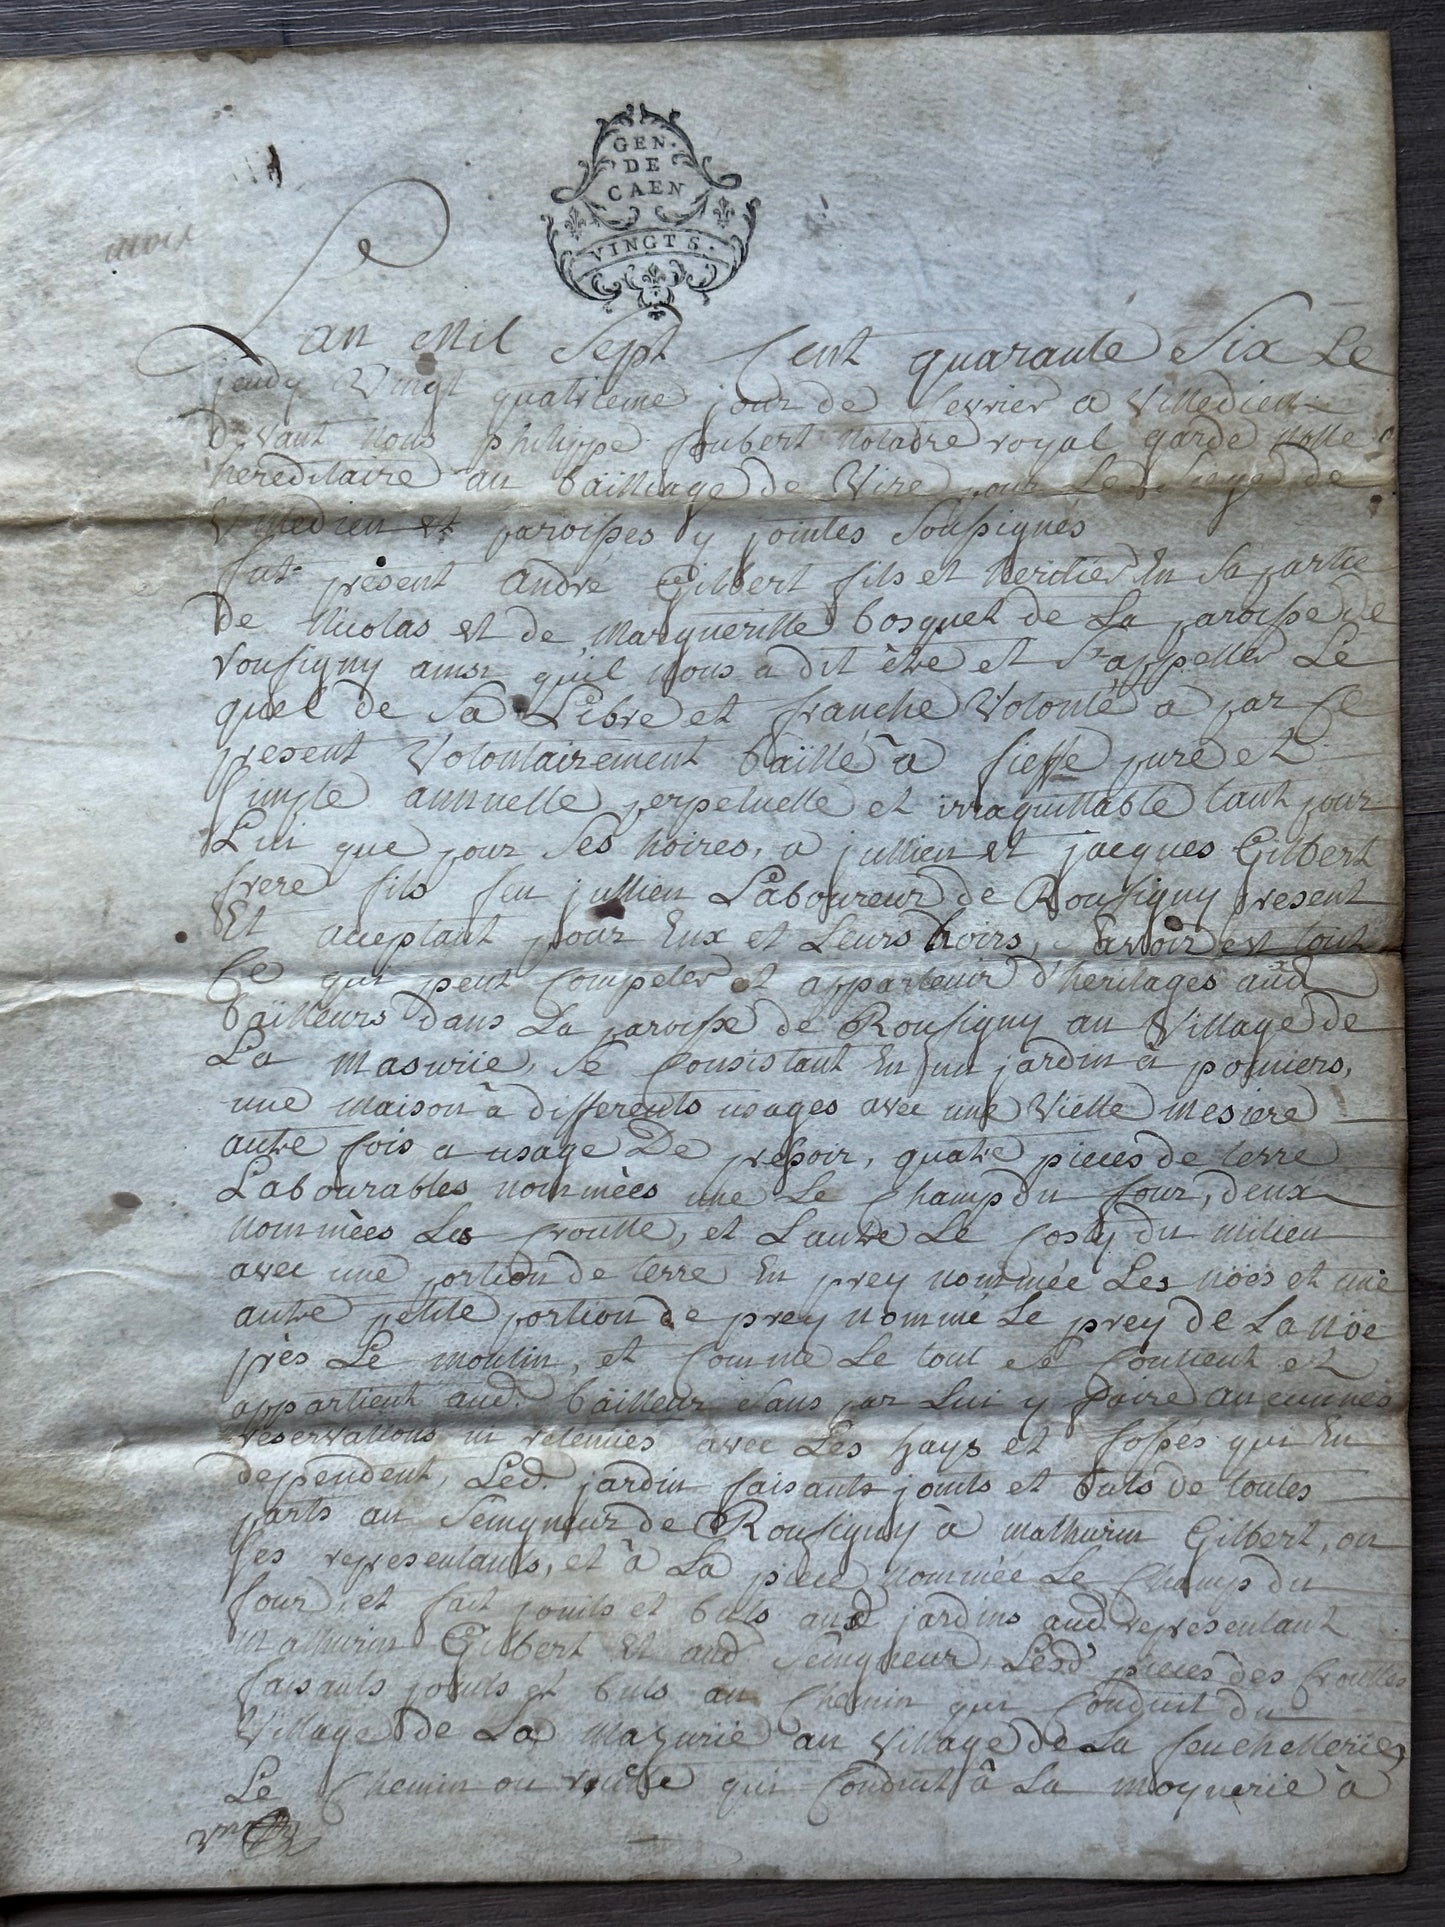 GEN.
DE
CAEN
VINGT S.
L'an Mil Sept Cent quarante Six Le
jeudy Vingt quatrieme jour de fevrier a Villedieu
Devant nous philippe Joubert notaire royal garde notte
hereditaire au bailliage de Vire pour Le Siege de
Villedieu et paroisses y jointes Soussignés
fut present andré Gilbert fils et heritier En Sa partie
de Nicolas et de Margueritte bosquet de La paroisse de
rousigny ainsi quil nous a dit être et S'appeller Le
quel de Sa Libre et franche Volonté a par Ce
present Volontairement baillé à fieffe pure et
Simple annuelle perpetuelle et irraquittable tant pour
Lui que pour Ses hoires, a jullien et jacques Gilbert
frere fils feu jullien Laboureur de Rousigny present
Et acceptant pour Eux et Leurs hoirs, Savoir est tout
Ce qui peut Competer et appartenir d'heritages aud
bailleurs dans La paroisse de Rousigny au Village de
La masurie, Se Consistant En un jardin à pomiers,
une maison à differents usages avec une Vielle mesiere
autre fois a usage De presoir, quatre pieces de terre
Labourables nommées une Le Champ du four, deux
nommées Les Croutte, et L'autre Le Costy du milieu
avec une portion de terre En prey nommée Les nöes et une
autre petite portion de prey nommé Le prey de La nöe
près Le moulin, et Comme Le tout Se Contient et
appartient aud. bailleur Sans par Lui y faire aucunnes
reservations ni retenues avec Les hays et fossés qui En
dependent, Led. jardin faisants joints et buts de toutes
parts au Seingneur de Rousigny à mathurin Gilbert, ou
Ses representants, et à La piece nommée Le Champ du
four, et fait joints et buts aud jardins aud. representant
Mathurin Gilbert Et aud Seingneur, Lesd. pieces des Crouttes
faisants joints et buts au Chemin qui Conduit du
Village de La Mazurie au Village de La feuchellerie,
Le Chemin ou qui Conduit à La moynerie à